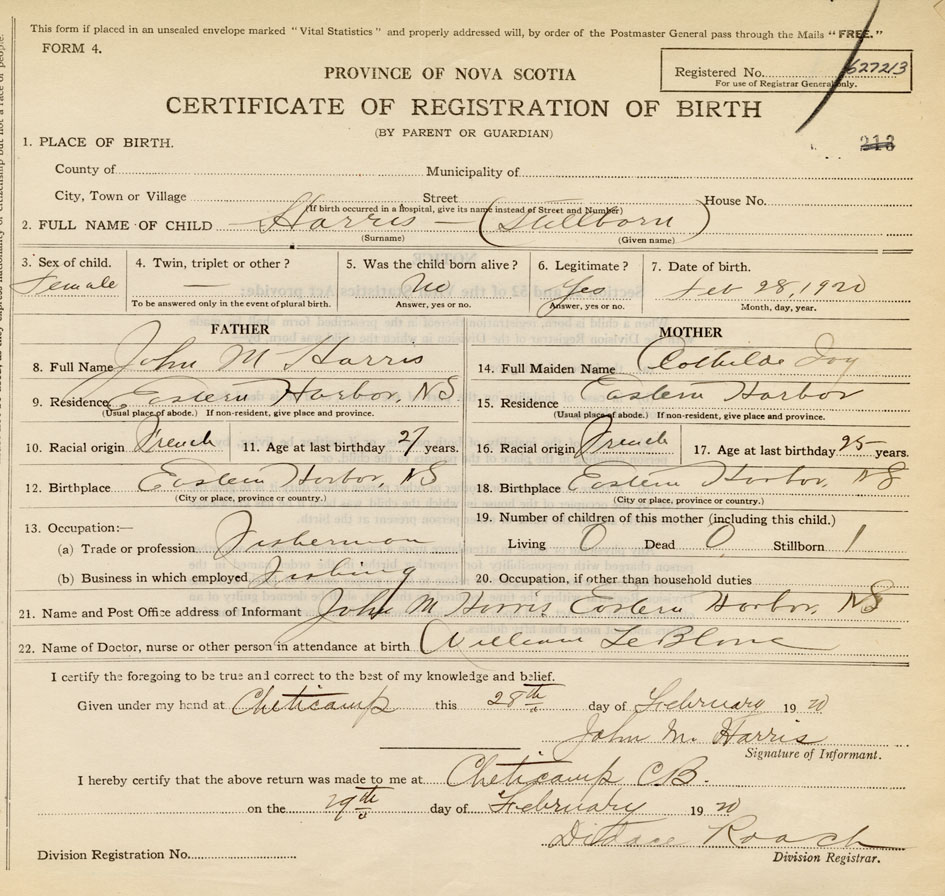 This form if placed in an unsealed envelope marked "Vital Statistics" and properly addressed will, by order of the Postmaster General pass through the Mails "FREE."
FORM 4.
PROVINCE OF NOVA SCOTIA
Registered No. 627213
For use of Registrar General only.
CERTIFICATE OF REGISTRATION OF BIRTH
(BY PARENT OR GUARDIAN)
213
1. PLACE OF BIRTH.
County of Municipality of
City, Town or Village Street House No.
(If birth occurred in a hospital, give its name instead of Street and Number)
2. FULL NAME OF CHILD Harris — (Stillborn)
(Surname) (Given name)
3. Sex of child. 4. Twin, triplet or other? 5. Was the child born alive? 6. Legitimate? 7. Date of birth.
Female — No Yes Feb 28, 1920
To be answered only in the event of plural birth. Answer, yes or no. Answer, yes or no. Month, day, year.
FATHER MOTHER
8. Full Name John M Harris 14. Full Maiden Name Clothilde
9. Residence Eastern Harbor, NS 15. Residence Eastern Harbor
(Usual place of abode.) If non-resident, give place and province. (Usual place of abode.) If non-resident, give place and province.
10. Racial origin French 11. Age at last birthday 27 years. 16. Racial origin French 17. Age at last birthday 25 years.
12. Birthplace Eastern Harbor, NS 18. Birthplace Eastern Harbor, NS
(City or place, province or country.) (City or place, province or country.)
13. Occupation:— 19. Number of children of this mother (including this child.)
(a) Trade or profession Fisherman Living 0 Dead 0 Stillborn 1
(b) Business in which employed Fishing 20. Occupation, if other than household duties
21. Name and Post Office address of Informant John M Harris Eastern Harbor, NS
22. Name of Doctor, nurse or other person in attendance at birth William LeBlanc
I certify the foregoing to be true and correct to the best of my knowledge and belief.
Given under my hand at Cheticamp this 28th day of February 1920
John M. Harris
Signature of Informant.
I hereby certify that the above return was made to me at Cheticamp C.B.
on the 29th day of February 1920
Roach
Division Registration No. Division Registrar.